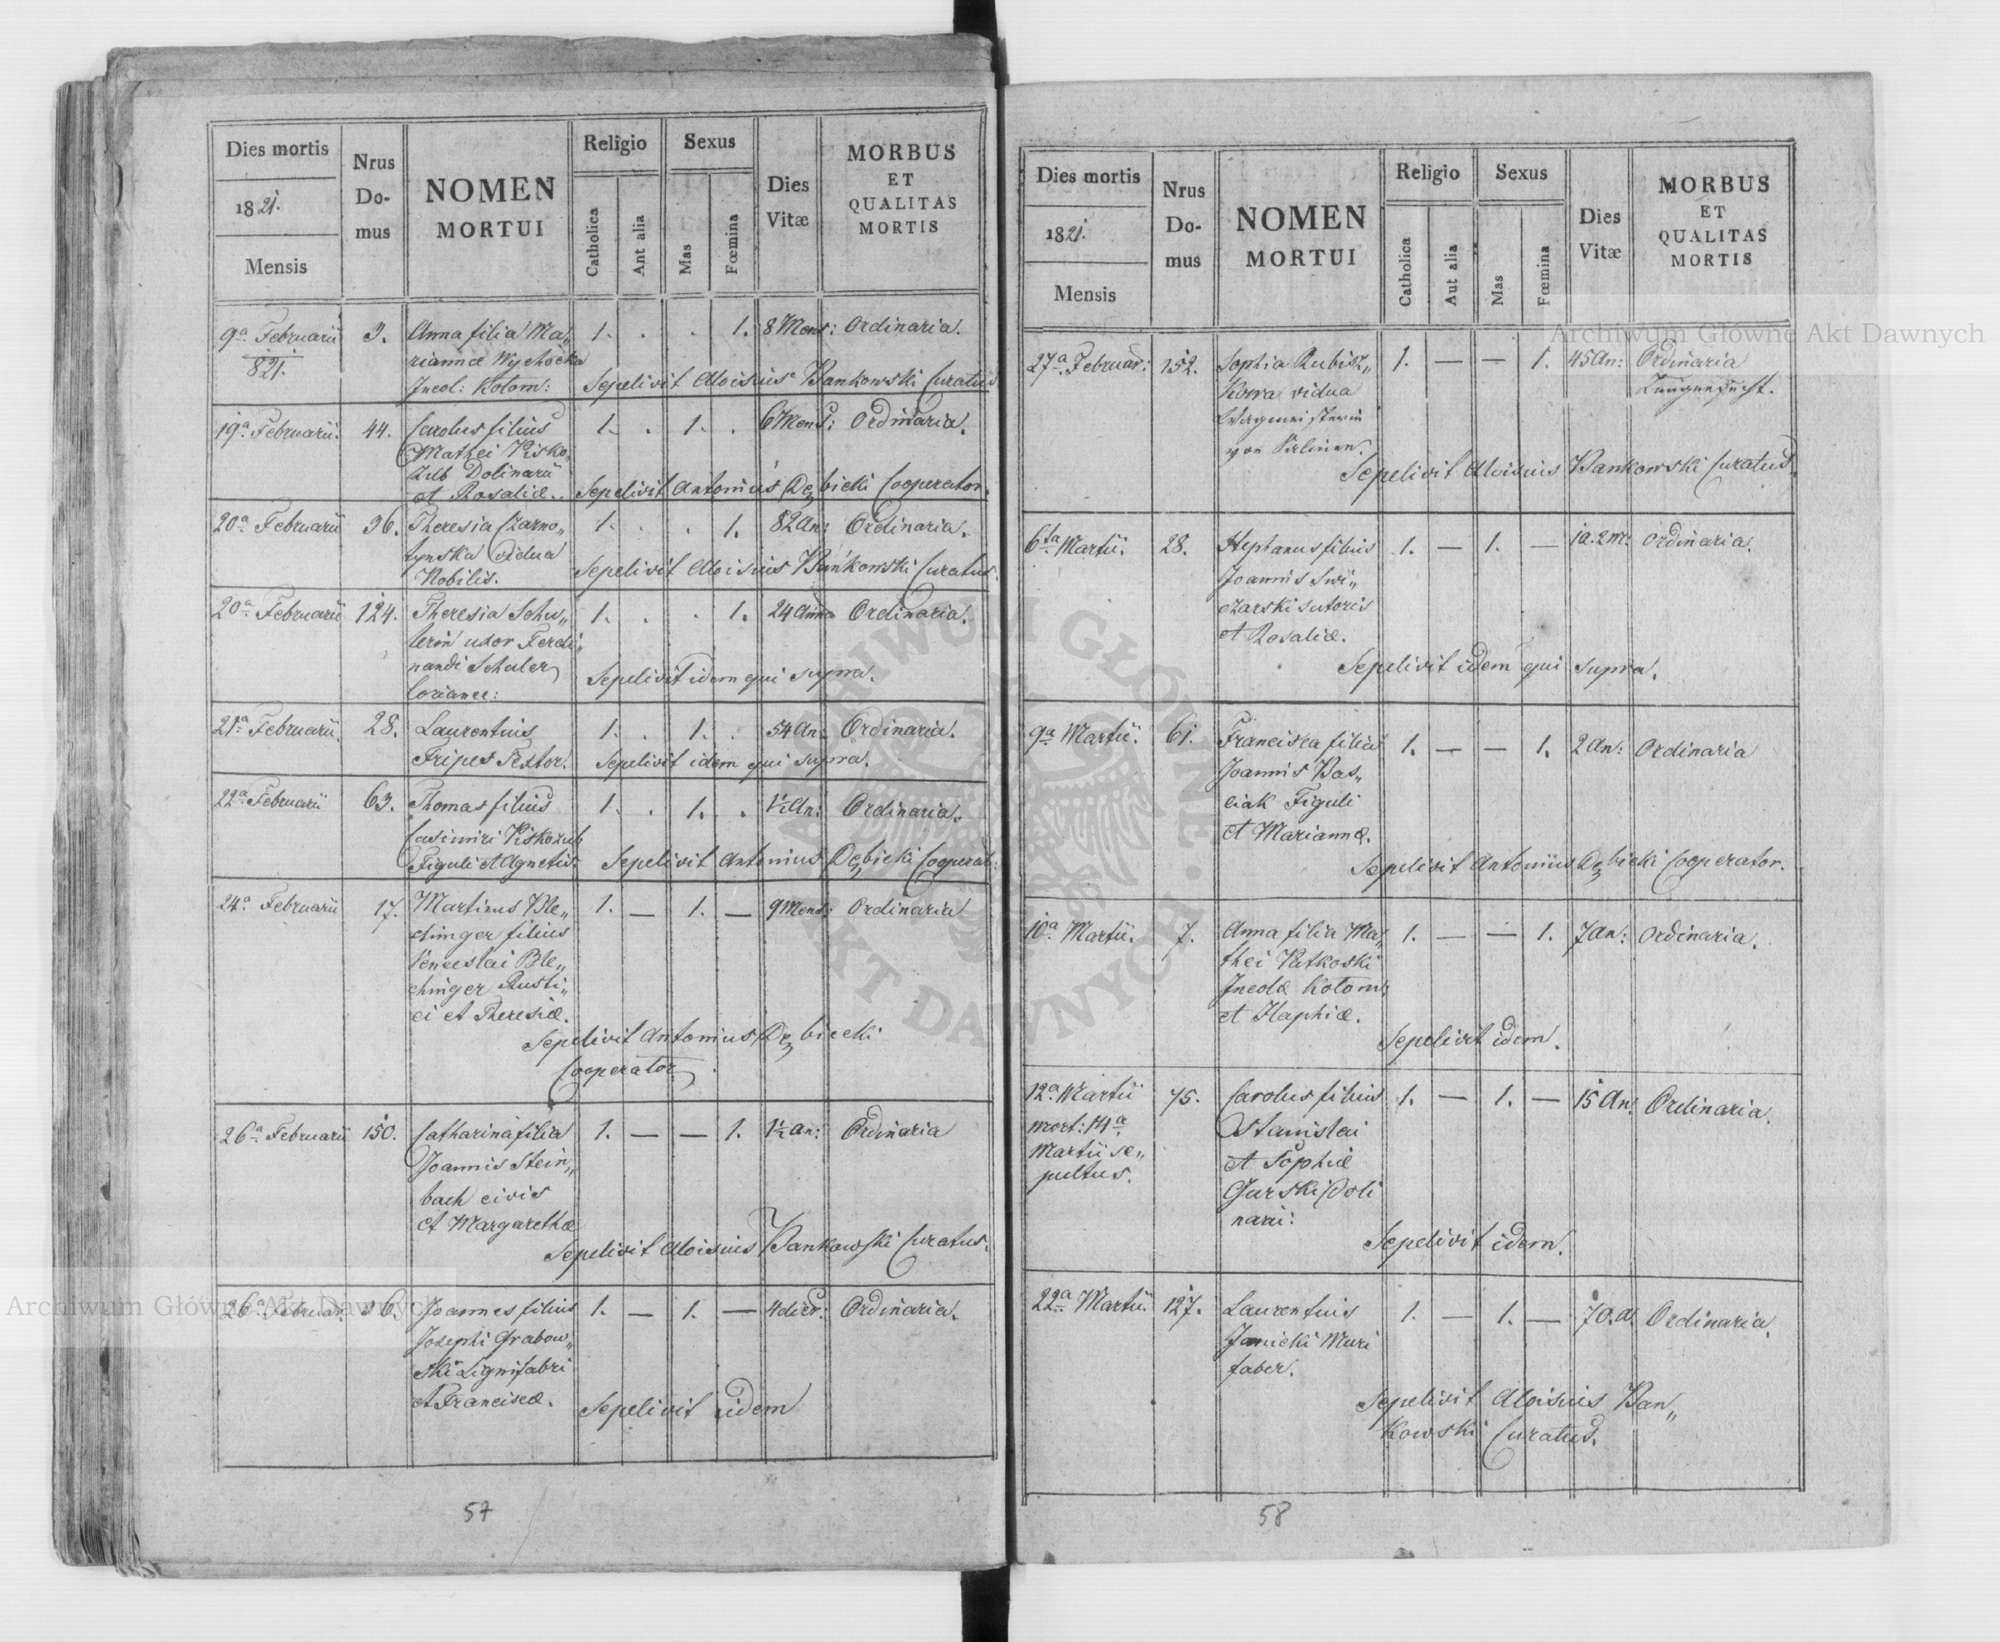 Dies mortis
1821.
Mensis
Nrus
Do-
mus
NOMEN
MORTUI
Religio
Catholica
Aut alia
Sexus
Mas
Fœmina
Dies
Vitæ
MORBUS
ET
QUALITAS
MORTIS
9a Februarii 3. Anna filia Ma„ 1. . . 1. 8 Mens: Ordinaria.
821. riannæ Wychocka
Incol: Kolom: Sepelivit Aloisius Bankowski Curatus
19a Februarii. 44. Carolus filius 1. . 1. . 6 Mens: Ordinaria.
Mathei Kisko
zub Dolinarii
et Rosaliæ. Sepelivit Antonius Dębicki Cooperator.
20a Februarii 36. Theresia Czarno„ 1. . . 1. 82 An: Ordinaria.
tynska vidua
Nobilis. Sepelivit Aloisius Bankowski Curatus.
20a Februarii 124. Theresia Schu„ 1. . . 1. 24 Anno Ordinaria.
lerin uxor Ferdi„
nandi Schuler
Sepelivit idem qui supra.
21a Februarii. 28. Laurentius 1. . 1. . 54 An: Ordinaria.
Fripes Textor. Sepelivit idem qui supra.
22a Februarii 63. Thomas filius 1. . 1. . 1½ An: Ordinaria.
Casimiri Kiskozub
Figuli et Agnetis. Sepelivit Antonius Dębicki Cooperat:
24a Februarii 17. Martinus Ble„ 1. — 1. — 9 Mens: Ordinaria
chinger filius
Venceslai Ble„
chinger Rusti„
ci et Theresiæ.
Sepelivit Antonius Dębicki
Cooperator.
26a Februarii 150. Catharina filia 1. — — 1. 1½ an: Ordinaria
Joannis Stein„
bach civis
et Margarethæ
Sepelivit Aloisius Bankowski Curatus.
26a Februar. 36. Joannes filius 1. — 1. — 4 dier: Ordinaria.
Josephi Grabow„
ski Lignifabri
et Franciscæ. Sepelivit idem
57
Dies mortis
1821.
Mensis
Nrus
Do-
mus
NOMEN
MORTUI
Religio
Catholica
Aut alia
Sexus
Mas
Fœmina
Dies
Vitæ
MORBUS
ET
QUALITAS
MORTIS
27a Februar: 152. Sophia Rubisz„ 1. — — 1. 45 An: Ordinaria
kowa vidua
Wagmeisterin
von
Sepelivit Aloisius Bankowski Curatus.
6ta Martii. 28. Stephanus filius 1. — 1. — 1a. 2 m: Ordinaria.
Joannis Swi„
czarski Sutoris
et Rosaliæ.
Sepelivit idem qui supra.
9a Martii. 61. Francisca filia 1. — — 1. 2 an: Ordinaria
Joannis Bas„
ciak Figuli
et Mariannæ.
Sepelivit Antonius Dębicki Cooperator.
10a Martii. 7. Anna filia Ma„ 1. — — 1. 7 an: Ordinaria.
thei Rutkoski
Incolæ Kolom:
et
Sepelivit idem.
12a Martii 75. Carolus filius 1. — 1. — 15 An: Ordinaria.
mort: 14a Stanislai
Martii se„ et Sophiæ
pultus. Gurski Doli
narii:
Sepelivit idem.
22a Martii. 127. Laurentius 1. — 1. — 70. a. Ordinaria.
Janicki Muri
faber.
Sepelivit Aloisius Ban„
kowski Curatus.
58
Archiwum Główne Akt Dawnych
Archiwum Główne Akt Dawnych
ARCHIWUM GŁÓWNE · AKT DAWNYCH ·